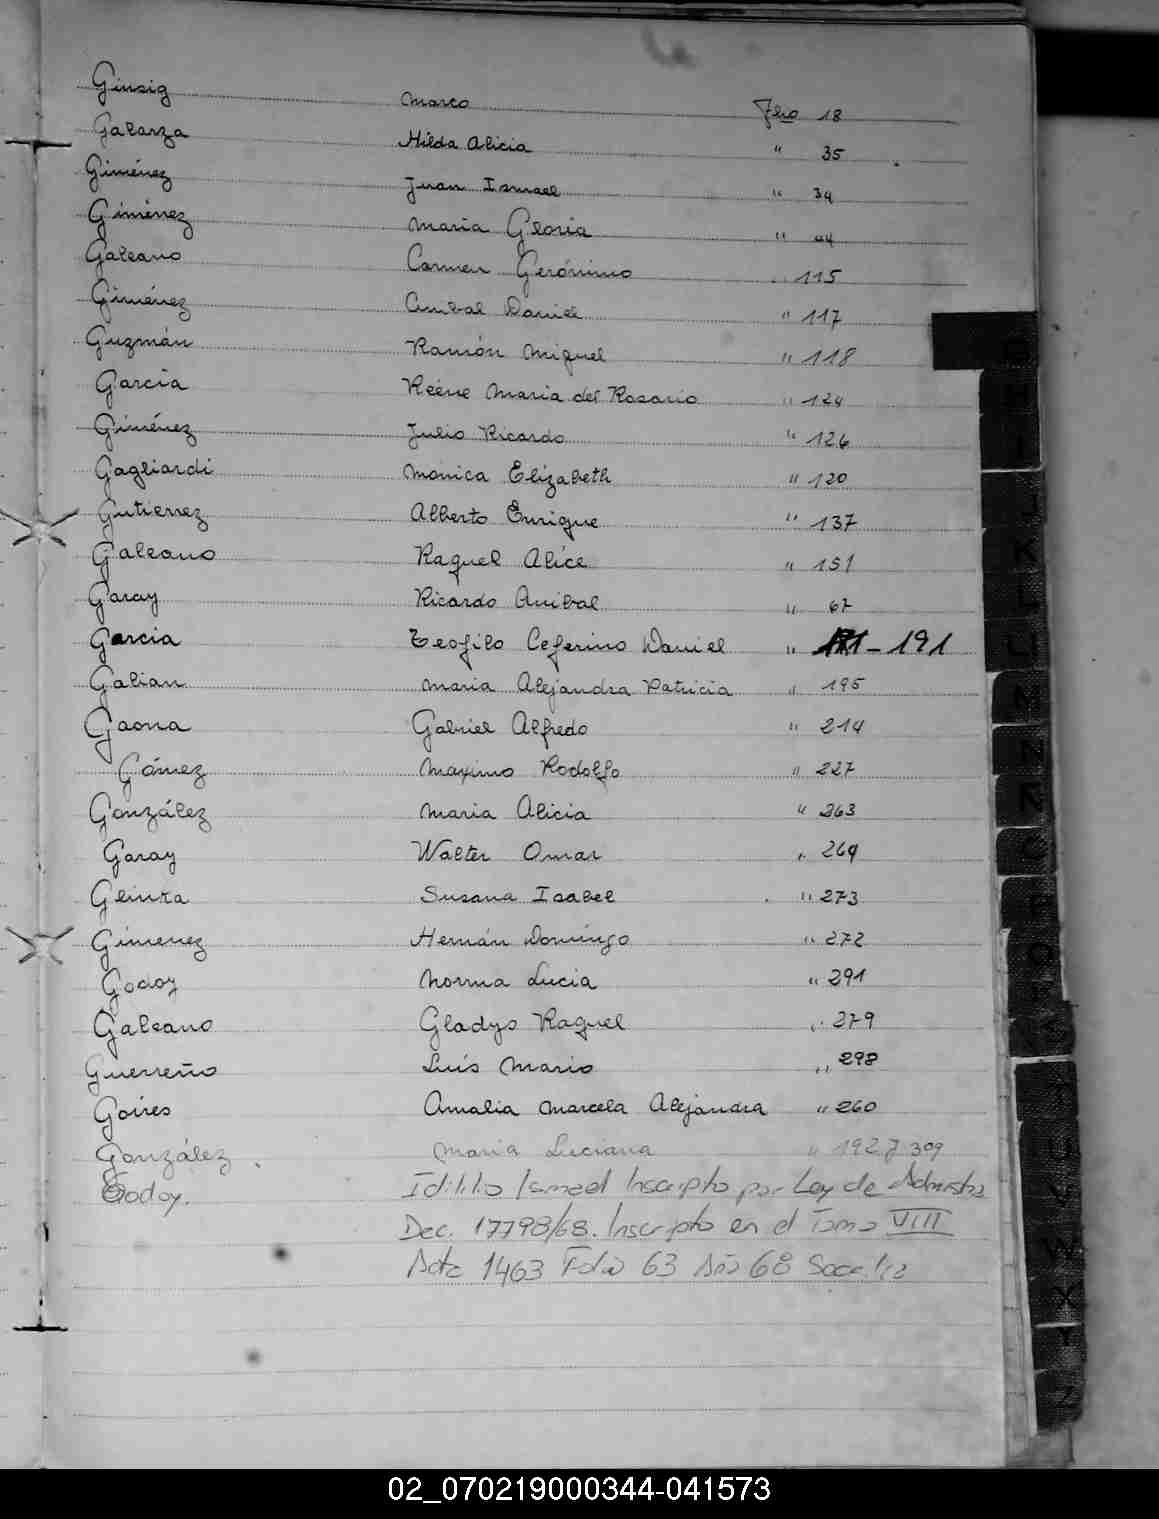 Ginsig Marco Flio 18
Galarza Hilda Alicia " 35
Giménez Juan Ismael " 39
Giménez Maria Gloria " 44
Galeano Carmen Gerónimo " 115
Giménez Anibal Daniel " 117
Guzmán Ramón Miguel " 118
Garcia Reéne Maria del Rosario " 124
Giménez Julio Ricardo " 126
Gagliardi Mónica Elizabeth " 120
Gutierrez Alberto Enrique " 137
Galeano Raquel Alice " 151
Garay Ricardo Anibal " 67
Garcia Teofilo Ceferino Daniel " 191
Galian Maria Alejandra Patricia " 195
Gaona Gabriel Alfredo " 214
Gómez Maximo Rodolfo " 227
González Maria Alicia " 263
Garay Walter Omar " 269
Glinka Susana Isabel " 273
Gimenez Hernán Domingo " 272
Godoy Norma Lucia " 291
Galeano Gladys Raquel " 279
Guerreño Luis Mario " 298
Goires Amalia Marcela Alejandra " 260
González Maria Luciana " 192 309
Godoy. Idilio Ismael Inscripto por Ley de
Dec. 17798/68. Inscripto en el Tomo VIII
Acta 1463 Folio 63 Año 68
K
L
X
Y
Z
02_070219000344-041573